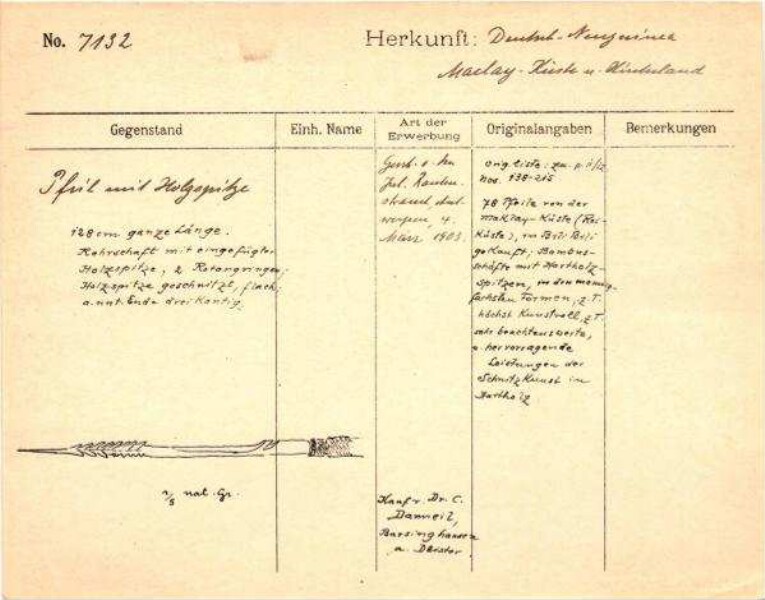 No. 7132
Herkunft: Deutsch-Neuguinea
Maclay-Küste u.
Gegenstand
Einh. Name
Art der
Erwerbung
Originalangaben
Bemerkungen
Pfeil mit Holzspitze
128 cm ganze Länge.
Rohrschaft mit eingefügter
Holzspitze, 2 Rotangringen;
Holzspitze geschnitzt, flach,
a. unt. Ende dreikantig.
1/5 nat. Gr.
Gesch. v. Hn
Jul.
März 1903.
Kauf v. Dr. C.
Damneil,
Barsinghausen
a. Deister
Orig. liste:
Nos. 138-215
78 Pfeile von der
Maklay-Küste (Rai-
Küste), in Bili Bili
gekauft; Bambus-
schäfte mit Hartholz-
spitzen, in den mannig-
fachsten Formen, z.T.
höchst Kunstvoll, z.T.
sehr beachtenswerte,
u. hervorragende
Leistungen der
Schnitzkunst in
Hartholz